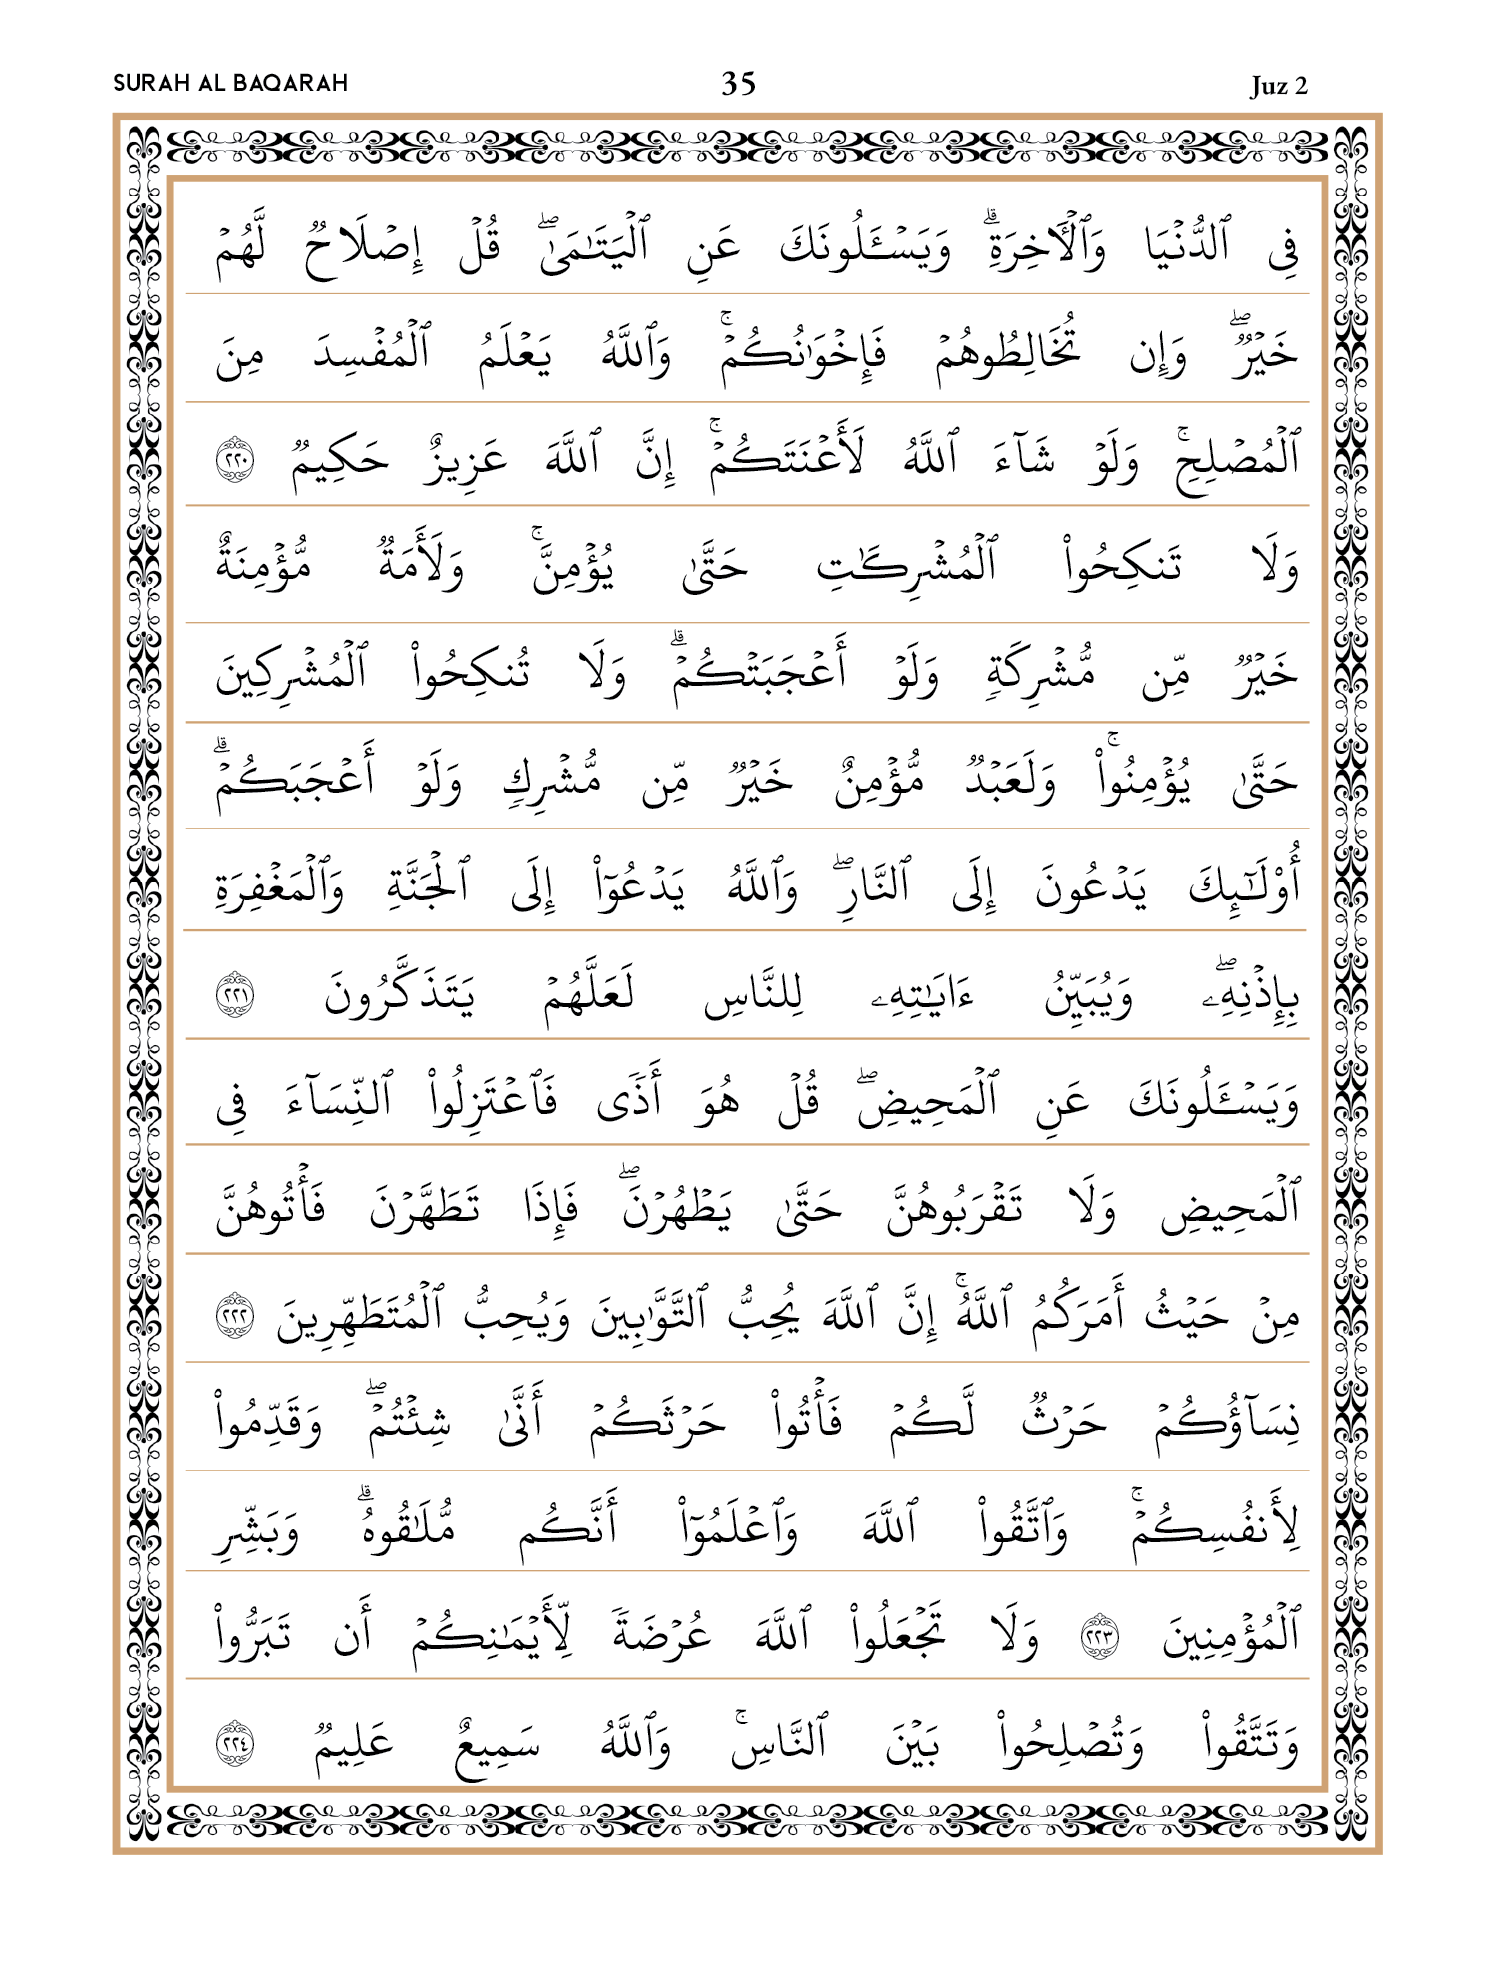 SURAH AL BAQARAH 35 Juz 2
فِى ٱلدُّنْيَا وَٱلْـَٔاخِرَةِ ۗ وَيَسْـَٔلُونَكَ عَنِ ٱلْيَتَـٰمَىٰ ۖ قُلْ إِصْلَاحٌ لَّهُمْ
خَيْرٌ ۖ وَإِن تُخَالِطُوهُمْ فَإِخْوَٰنُكُمْ ۚ وَٱللَّهُ يَعْلَمُ ٱلْمُفْسِدَ مِنَ
ٱلْمُصْلِحِ ۚ وَلَوْ شَآءَ ٱللَّهُ لَأَعْنَتَكُمْ ۚ إِنَّ ٱللَّهَ عَزِيزٌ حَكِيمٌ ٢٢٠
وَلَا تَنكِحُوا۟ ٱلْمُشْرِكَـٰتِ حَتَّىٰ يُؤْمِنَّ ۚ وَلَأَمَةٌ مُّؤْمِنَةٌ
خَيْرٌ مِّن مُّشْرِكَةٍ وَلَوْ أَعْجَبَتْكُمْ ۗ وَلَا تُنكِحُوا۟ ٱلْمُشْرِكِينَ
حَتَّىٰ يُؤْمِنُوا۟ ۚ وَلَعَبْدٌ مُّؤْمِنٌ خَيْرٌ مِّن مُّشْرِكٍ وَلَوْ أَعْجَبَكُمْ ۗ
أُو۟لَـٰٓئِكَ يَدْعُونَ إِلَى ٱلنَّارِ ۖ وَٱللَّهُ يَدْعُوٓا۟ إِلَى ٱلْجَنَّةِ وَٱلْمَغْفِرَةِ
بِإِذْنِهِۦ ۖ وَيُبَيِّنُ ءَايَـٰتِهِۦ لِلنَّاسِ لَعَلَّهُمْ يَتَذَكَّرُونَ ٢٢١
وَيَسْـَٔلُونَكَ عَنِ ٱلْمَحِيضِ ۖ قُلْ هُوَ أَذًى فَٱعْتَزِلُوا۟ ٱلنِّسَآءَ فِى
ٱلْمَحِيضِ وَلَا تَقْرَبُوهُنَّ حَتَّىٰ يَطْهُرْنَ ۖ فَإِذَا تَطَهَّرْنَ فَأْتُوهُنَّ
مِنْ حَيْثُ أَمَرَكُمُ ٱللَّهُ ۚ إِنَّ ٱللَّهَ يُحِبُّ ٱلتَّوَّٰبِينَ وَيُحِبُّ ٱلْمُتَطَهِّرِينَ ٢٢٢
نِسَآؤُكُمْ حَرْثٌ لَّكُمْ فَأْتُوا۟ حَرْثَكُمْ أَنَّىٰ شِئْتُمْ ۖ وَقَدِّمُوا۟
لِأَنفُسِكُمْ ۚ وَٱتَّقُوا۟ ٱللَّهَ وَٱعْلَمُوٓا۟ أَنَّكُم مُّلَـٰقُوهُ ۗ وَبَشِّرِ
ٱلْمُؤْمِنِينَ ٢٢٣ وَلَا تَجْعَلُوا۟ ٱللَّهَ عُرْضَةً لِّأَيْمَـٰنِكُمْ أَن تَبَرُّوا۟
وَتَتَّقُوا۟ وَتُصْلِحُوا۟ بَيْنَ ٱلنَّاسِ ۚ وَٱللَّهُ سَمِيعٌ عَلِيمٌ ٢٢٤